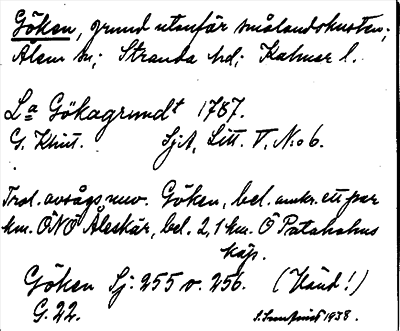 Göken, grund utanför smålandskusten;
Ålem sn; Stranda hd; Kalmar l.
La Gökagrundt 1787.
G. Klint. SjA, Litt. V. No 6.
Trol. avsågs nuv. Göken, bel. omkr. ett par
km. ÖNÖ Åleskär, bel. 2,1 km. Ö Patahohus
käp.
Göken Sj: 255 v. 256. (Händ!)
G. 22. 1938.